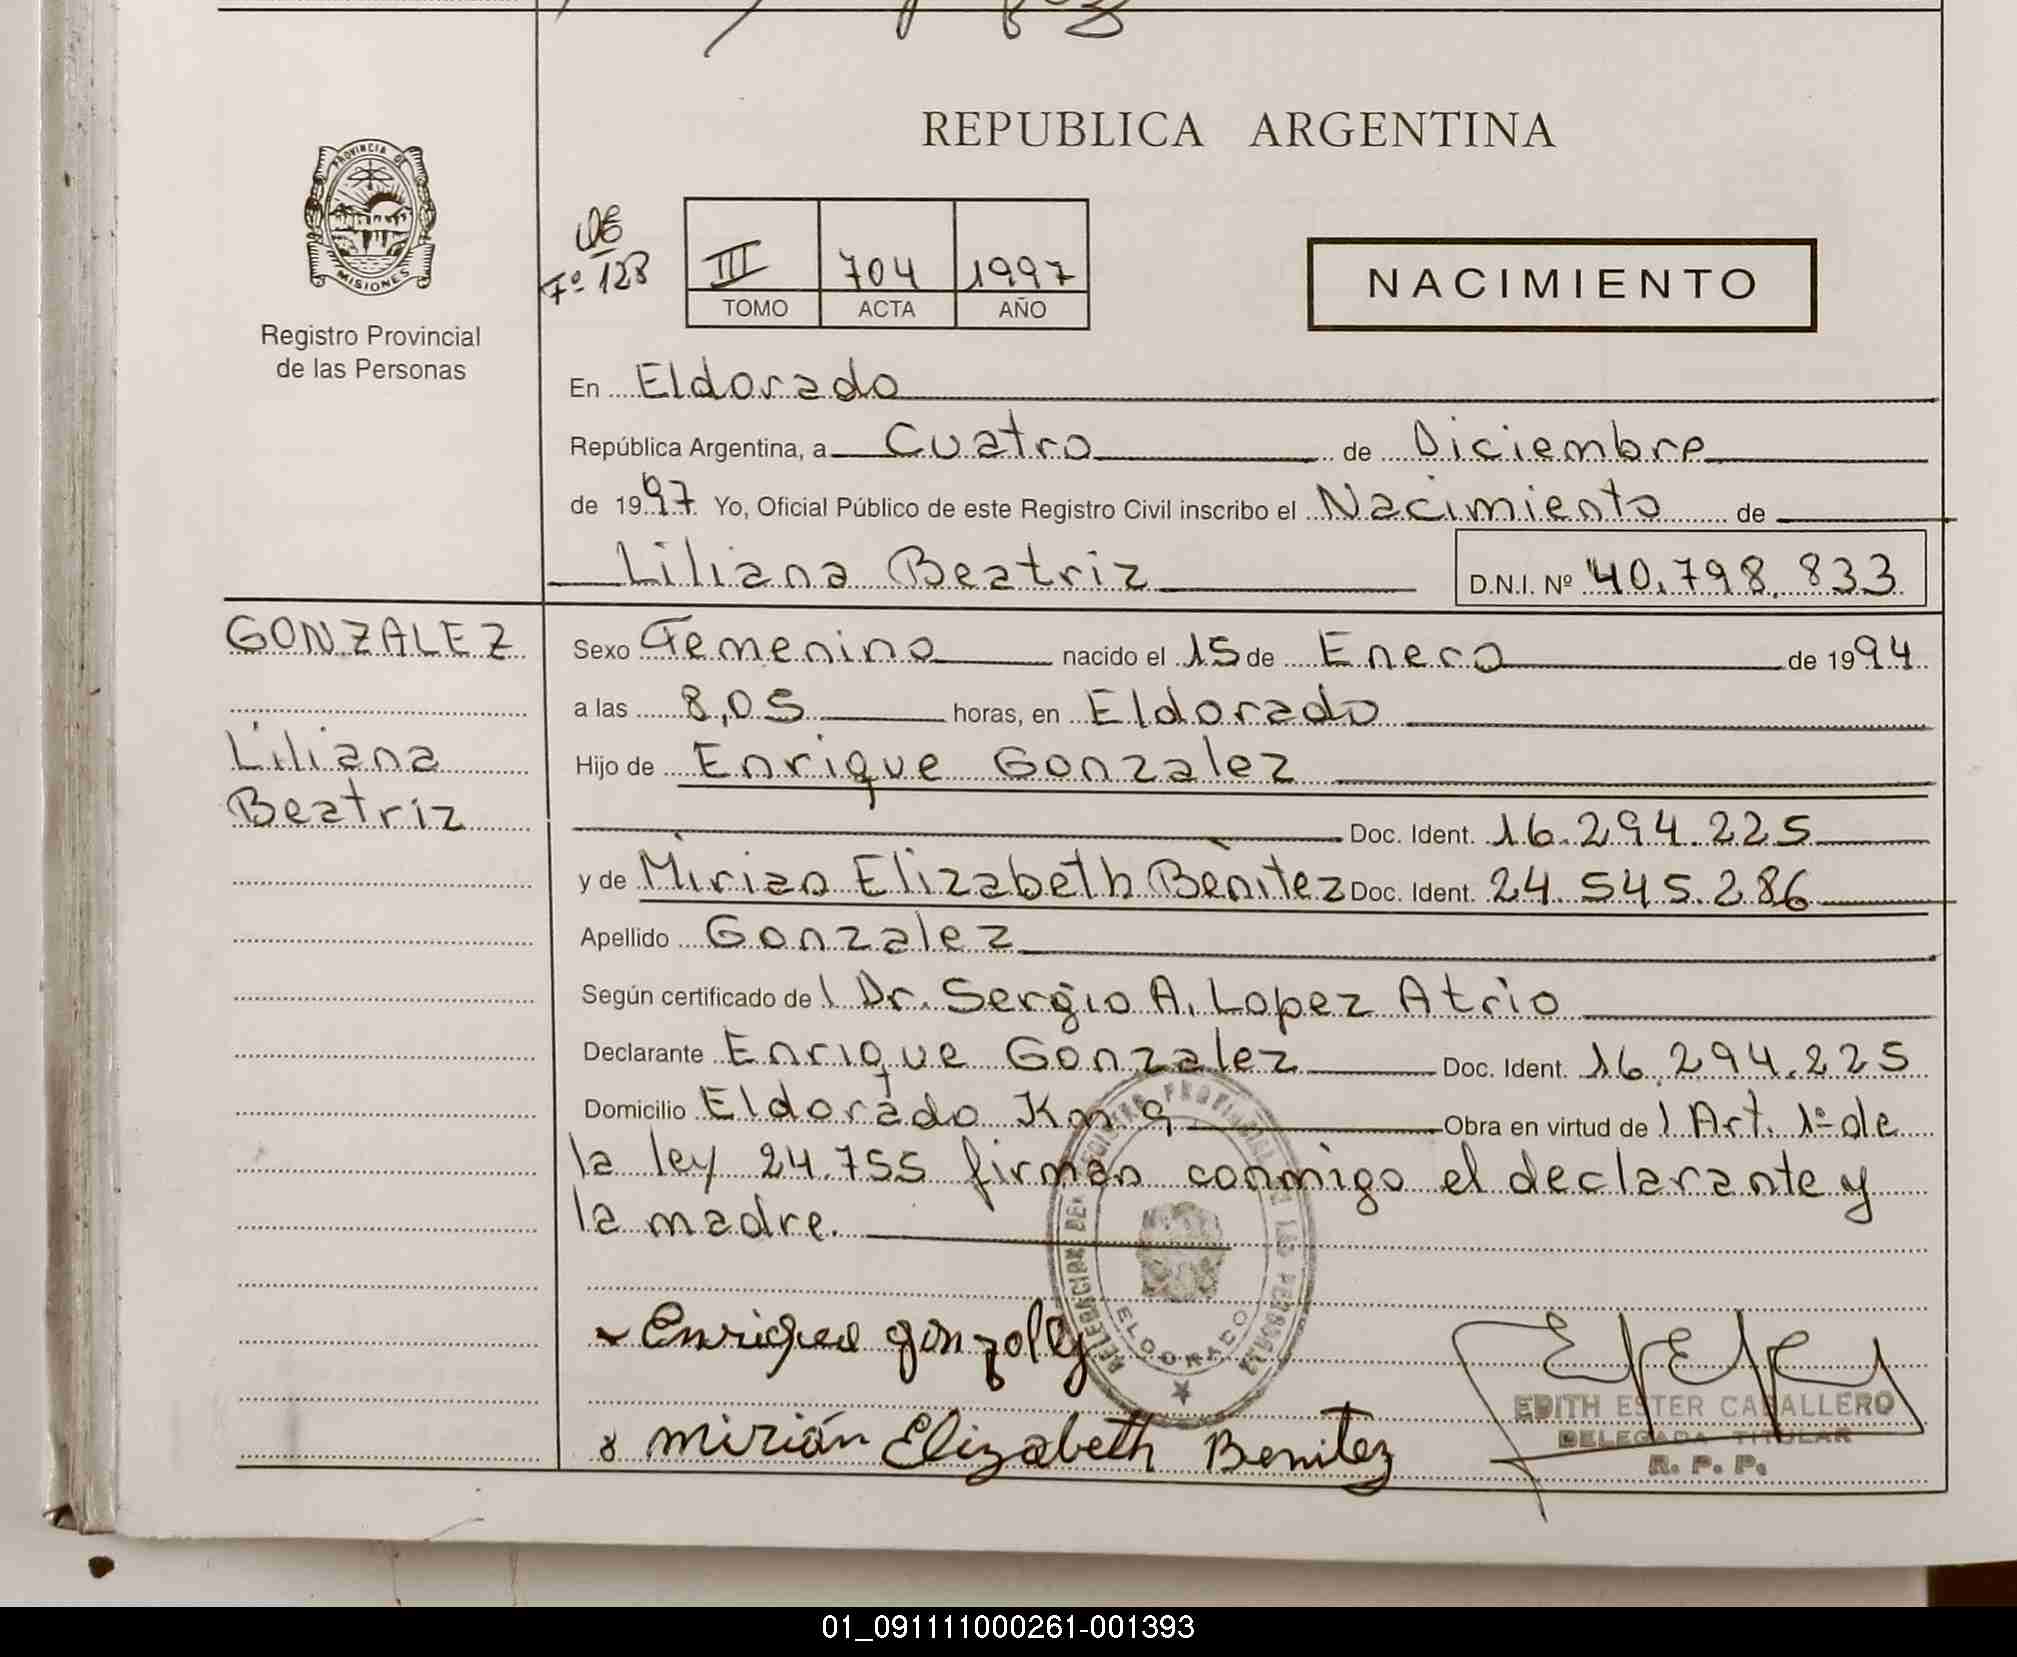 REPUBLICA ARGENTINA
PROVINCIA DE
MISIONES
Registro Provincial
de las Personas
Fº 128
III 704 1997
TOMO ACTA AÑO
NACIMIENTO
En Eldorado
República Argentina, a Cuatro de Diciembre
de 1997 Yo, Oficial Público de este Registro Civil inscribo el Nacimiento de
Liliana Beatriz D.N.I. Nº 40.798.833
GONZALEZ
Liliana
Beatriz
Sexo Femenino nacido el 15 de Enero de 1994
a las 8,05 horas, en Eldorado
Hijo de Enrique Gonzalez
Doc. Ident. 16.294.225
y de Mirian Elizabeth Benitez Doc. Ident. 24.545.286
Apellido Gonzalez
Según certificado de l Dr. Sergio A. Lopez Atrio
Declarante Enrique Gonzalez Doc. Ident. 16.294.225
Domicilio Eldorado Km 9 Obra en virtud de l Art. 1º de
la ley 24.755 firman conmigo el declarante y
la madre.
DELEGACION DEL REGISTRO PROVINCIAL DE LAS PERSONAS
ELDORADO
Enrique gonzalez
Mirián Elizabeth Benitez
EDITH ESTER CABALLERO
DELEGADA TITULAR
R. P. P.
01_091111000261-001393